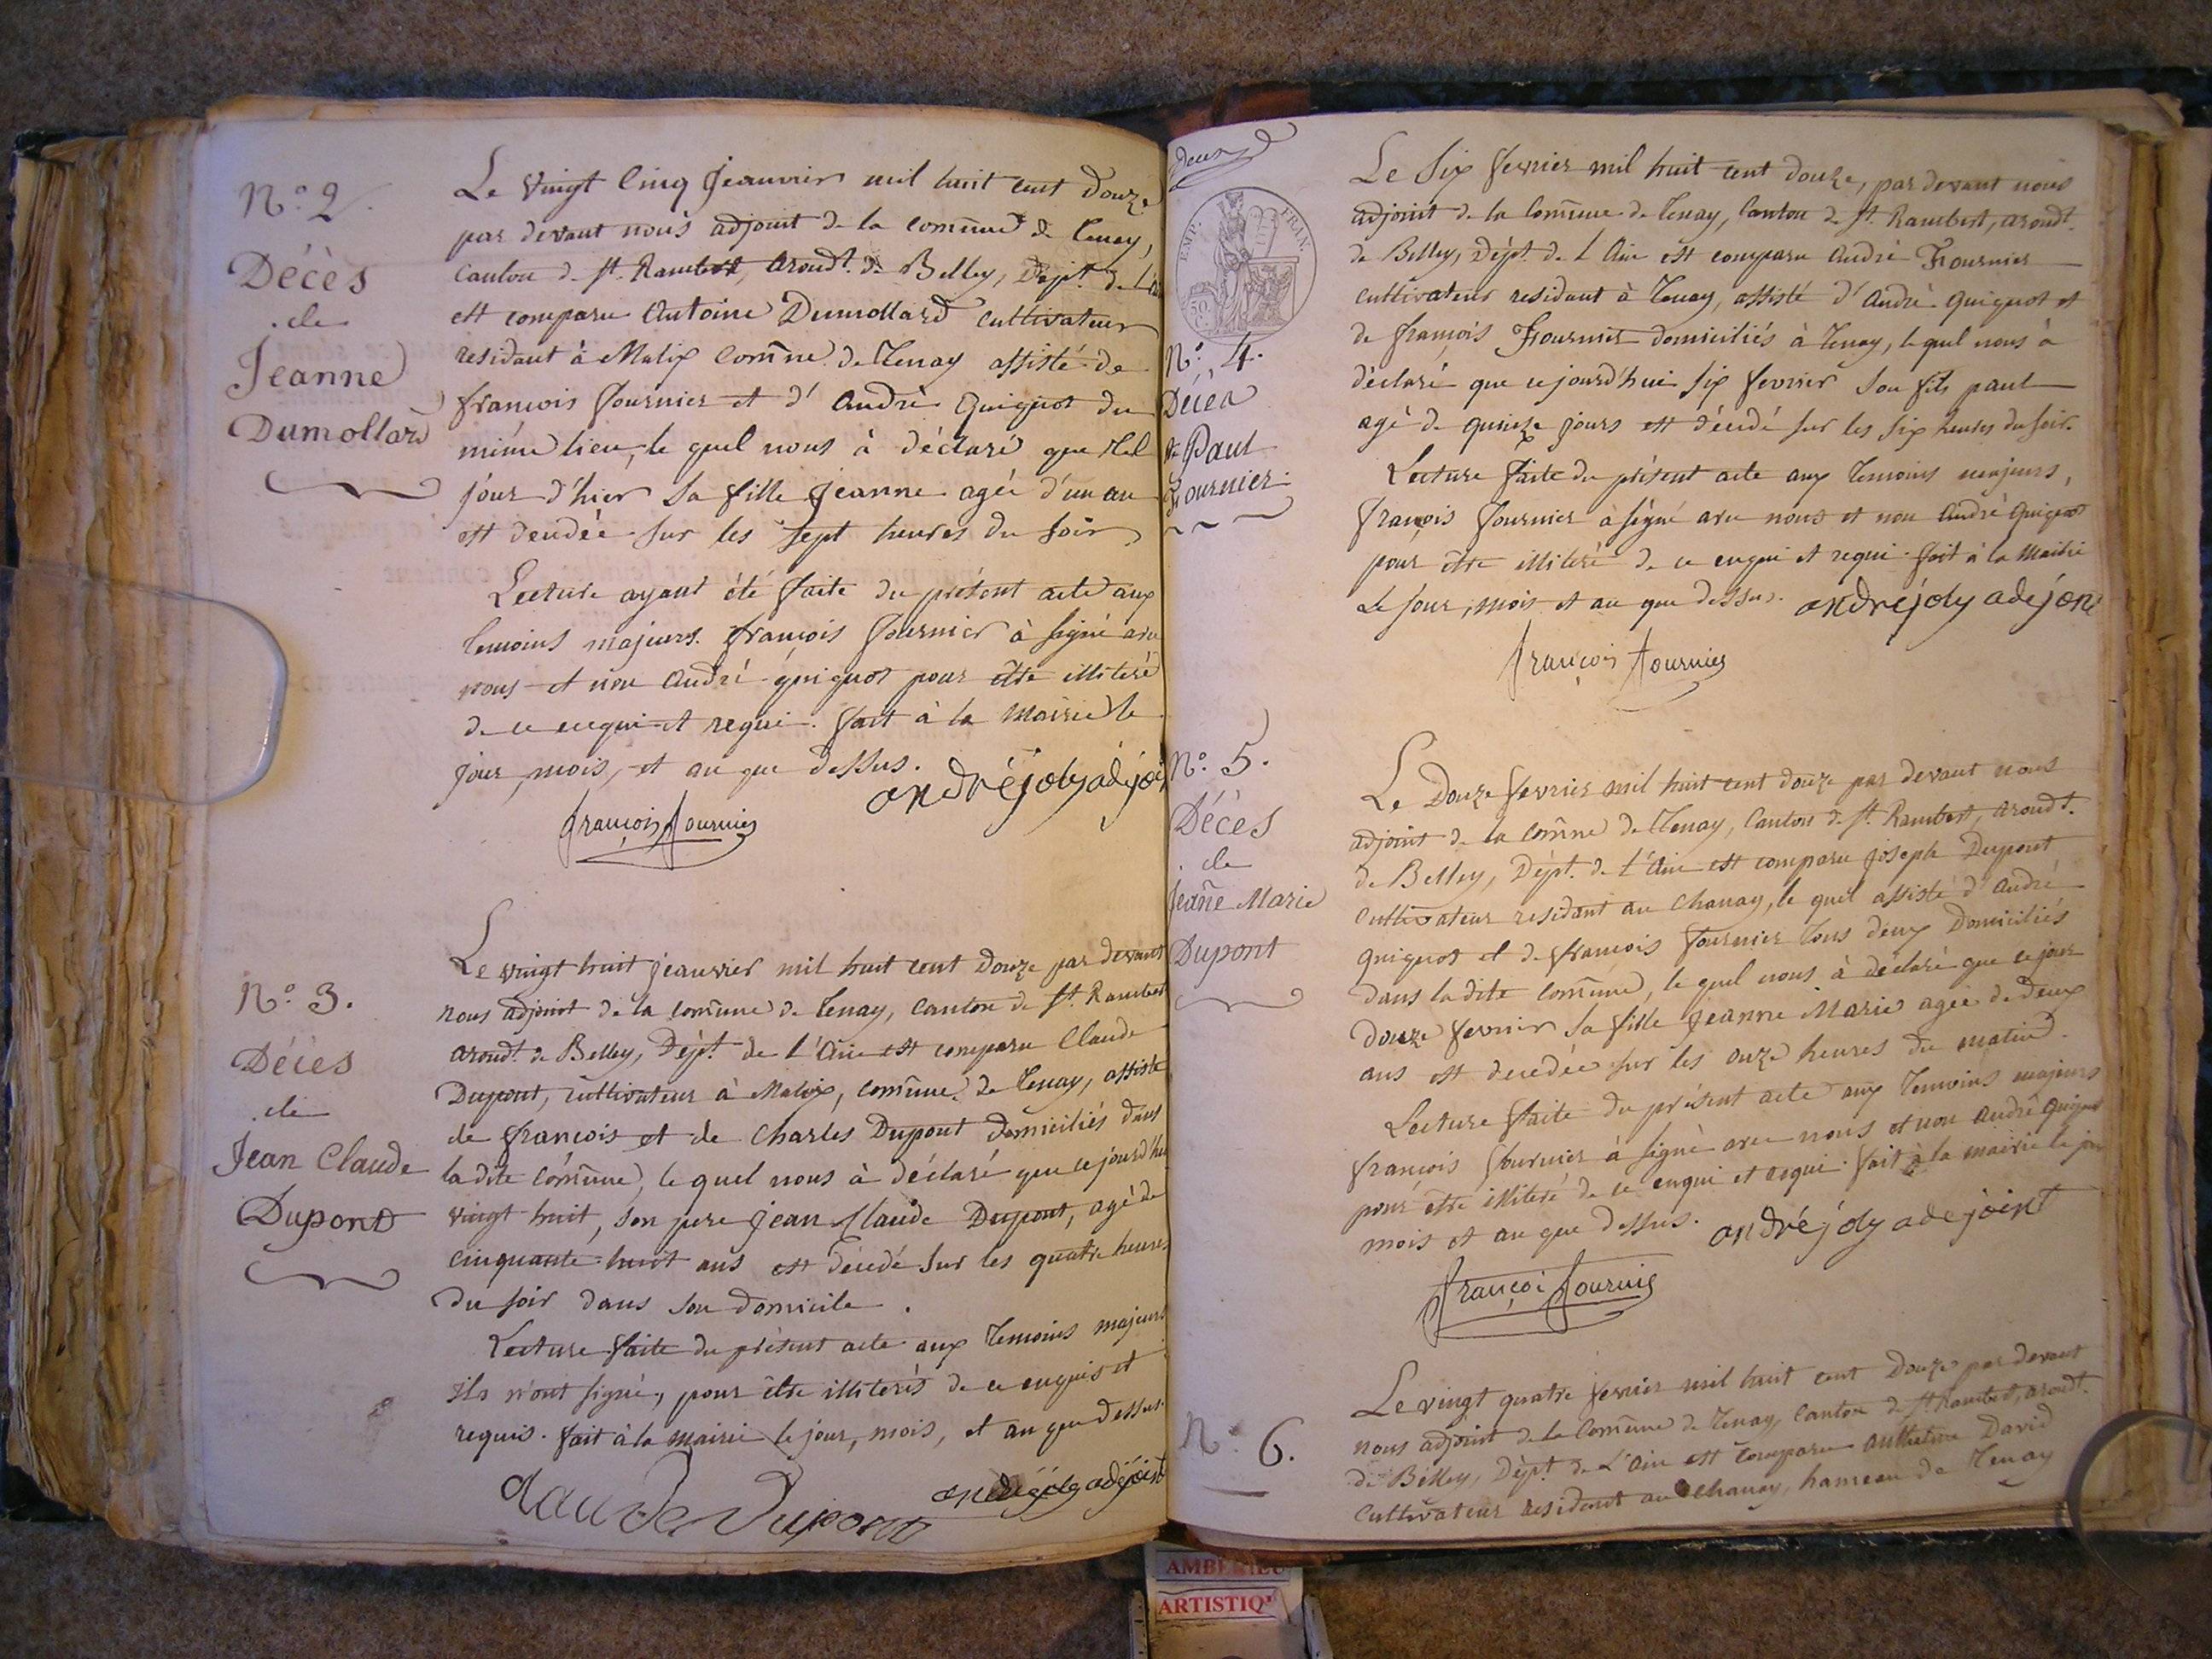 N.º 2.
Décès
de
Jeanne
Dumollard
Le vingt Cinq Jeanvier mil huit cent Douze
par devant nous adjoint de la Comm̃une de Tenay,
Canton de St. Rambert, Arondt. de Belley, Dépt. de L'Ain
est comparu Antoine Dumollard Cultivateur
residant à Malix Com̃ne de Tenay assisté de
françois fournier et d'André Quiquot du
même lieu, le quel nous à déclaré que le
jour d'hier sa fille Jeanne agée d'un an
est décédée sur les sept heures du soir
Lecture ayant été faite du présent acte aux
temoins majeurs. françois fournier à signé avec
nous et non André quiquot pour être illiteré
de ce enquis et requi. fait à la Mairie le
jour, mois, et an que dessus.
andréjolyadejoi
françois fournier
N.º 3.
Décès
de
Jean Claude
Dupont
Le vingt huit jeanvier mil huit cent Douze par devant
nous adjoint de la com̃une de Tenay, Canton de St. Rambert
arondt. de Belley, Dépt. de L'Ain est comparu Claude
Dupont, cultivateur à Malix, com̃une de Tenay, assisté
de françois et de Charles Dupont domiciliés dans
la dite com̃une, le quel nous à déclaré que ce jourd'hui
vingt huit, son pere Jean Claude Dupont, agé de
cinquante-huit ans est décédé sur les quatre heures
du soir dans son domicile.
Lecture faite du présent acte aux temoins majeurs
ils n'ont signé, pour être illiterés de ce enquis et
requis. fait à la Mairie le jour, mois, et an que dessus.
Claude Dupont andréjoly adejoint
deux
EMP. FRAN.
50 C.
N.º 4.
Décès
de Paul
Fournier
Le Six fevrier mil huit cent douze, par devant nous
adjoint de la Com̃mune de Tenay, Canton de St. Rambert, arondt.
de Belley, Dépt. de L'Ain est comparu André Fournier
cultivateur residant à Tenay, assisté d'André quiquot et
de françois Fournier domiciliés à Tenay, le quel nous à
déclaré que ce jourd'hui six fevrier son fils paul
agé de quinze jours est décédé sur les six heures du soir.
Lecture faite du présent acte aux temoins majeurs,
françois fournier à signé avec nous et non André Quiquot
pour être illiteré de ce enqui et requi. fait à la Mairie
Le jour, mois et an que dessus. andréjoly adejoint
françois fournier
N.º 5.
Décès
de
Jeañe Marie
Dupont
Le Douze fevrier mil huit cent douze par devant nous
adjoint de la Com̃ne de Tenay, Canton de St. Rambert, arondt.
de Belley, Dépt. de L'Ain est comparu joseph Dupont
cultivateur residant au Chanay, le quel assisté d'André
quiquot et de françois fournier tous deux Domiciliés
dans la dite com̃une, le quel nous à déclaré que ce jour
douze fevrier sa fille Jeanne Marie agée de deux
ans est decedée sur les onze heures du matin.
Lecture faite du présent acte aux temoins majeurs
françois fournier à signé avec nous et non André Quiquot
pour être illiteré de ce enqui et requi. fait à la mairie le jour
mois et an que dessus. andréjoly adejoint
françoi fournie
N.º 6.
Le vingt quatre fevrier mil huit cent Douze par devant
nous adjoint de la Com̃une de Tenay, Canton de St. Rambert, arondt.
de Belley, Dépt. de L'Ain est comparu Anthelme David
Cultivateur residant au Chanay, hameau de Tenay
AMBERIEU
ARTISTIQ'